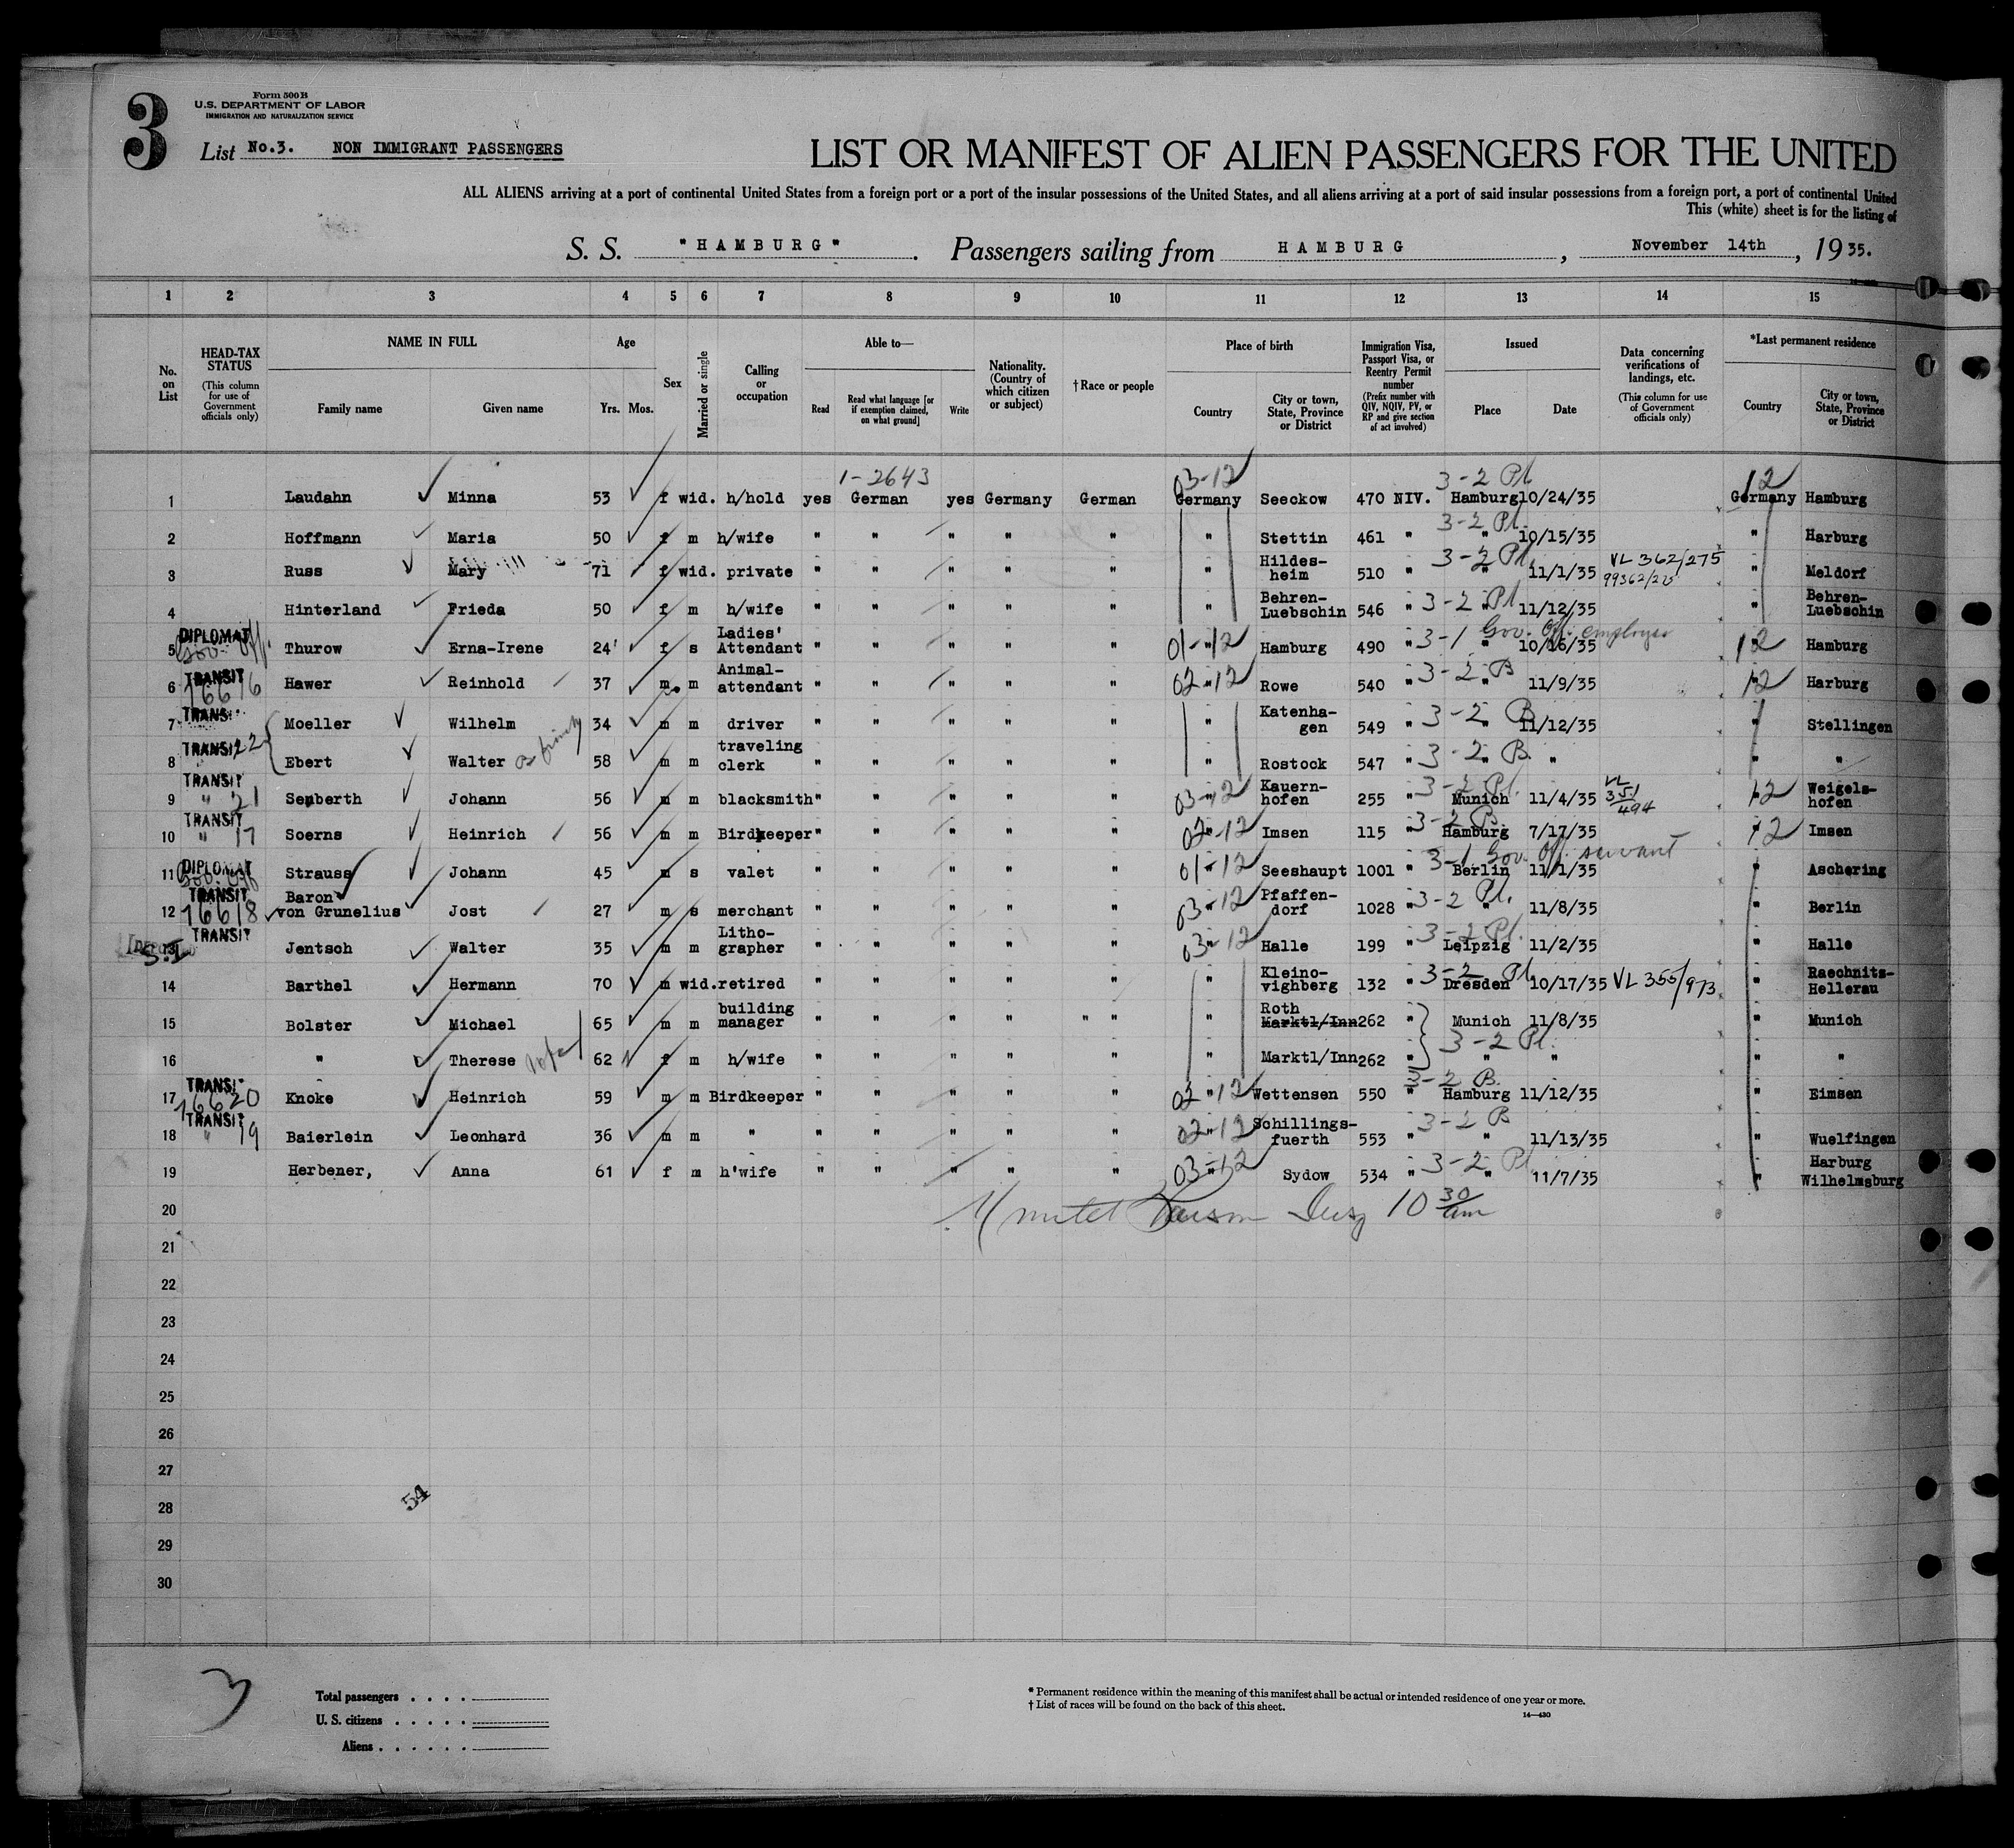 3
Form 500B
U.S. DEPARTMENT OF LABOR
IMMIGRATION AND NATURALIZATION SERVICE
List No.3. NON IMMIGRANT PASSENGERS
LIST OR MANIFEST OF ALIEN PASSENGERS FOR THE UNITED
ALL ALIENS arriving at a port of continental United States from a foreign port or a port of the insular possessions of the United States, and all aliens arriving at a port of said insular possessions from a foreign port, a port of continental United
This (white) sheet is for the listing of
S. S. "HAMBURG". Passengers sailing from HAMBURG, November 14th, 1935.
1 2 3 4 5 6 7 8 9 10 11 12 13 14 15
No. on List
HEAD-TAX STATUS (This column for use of Government officials only)
NAME IN FULL Family name Given name
Age Yrs. Mos.
Sex
Married or single
Calling or occupation
Able to— Read Read what language [or if exemption claimed, on what ground] Write
Nationality. (Country of which citizen or subject)
†Race or people
Place of birth Country City or town, State, Province or District
Immigration Visa, Passport Visa, or Reentry Permit number (Prefix number with QIV, NQIV, PV, or RP and give section of act involved)
Issued Place Date
Data concerning verifications of landings, etc. (This column for use of Government officials only)
*Last permanent residence Country City or town, State, Province or District
1-2643 03-12 3-2 Pl. 12
1 Laudahn Minna 53 f wid. h/hold yes German yes Germany German Germany Seeckow 470 NIV. Hamburg 10/24/35 Germany Hamburg
2 Hoffmann Maria 50 f m h/wife " " " " " " Stettin 461 " 3-2 Pl. " 10/15/35 " Harburg
3 Russ Mary 71 f wid. private " " " " " " Hildesheim 510 " 3-2 Pl. " 11/1/35 VL 362/275 99362/275 " Meldorf
4 Hinterland Frieda 50 f m h/wife " " " " " " Behren-Luebschin 546 " 3-2 Pl " 11/12/35 " Behren-Luebschin
5 DIPLOMAT Gov. Off. Thurow Erna-Irene 24 f s Ladies' Attendant " " " " " 01-12 " Hamburg 490 " 3-1 Gov. Off. employee " 10/16/35 12 Hamburg
6 TRANSIT 16616 Hawer Reinhold 37 m m Animal-attendant " " " " " 02-12 " Rowe 540 " 3-2 B " 11/9/35 12 " Harburg
7 TRANSIT Moeller Wilhelm 34 m m driver " " " " " " Katenhagen 549 " 3-2 B " 11/12/35 " Stellingen
8 TRANSIT 22 Ebert Walter 58 m m traveling clerk " " " " " " Rostock 547 " 3-2 B. " " " "
9 TRANSIT " 21 Senberth Johann 56 m m blacksmith " " " " " 03-12 " Kauernhofen 255 " 3-2 Pl. Munich 11/4/35 VL 351/494 12 " Weigelshofen
10 TRANSIT " 17 Soerns Heinrich 56 m m Birdkeeper " " " " " 02-12 " Imsen 115 " 3-2 B Hamburg 7/17/35 12 " Imsen
11 DIPLOMAT Gov. Off. Strauss Johann 45 m s valet " " " " " 01-12 Seeshaupt 1001 " 3-1 Gov. Off. servant Berlin 11/1/35 " Aschering
12 TRANSIT 16618 Baron von Grunelius Jost 27 m s merchant " " " " " 03-12 " Pfaffendorf 1028 " 3-2 Pl. " 11/8/35 " Berlin
13 TRANSIT S.I. Jentsch Walter 35 m m Lithographer " " " " " 03-12 " Halle 199 " 3-2 Pl. Leipzig 11/2/35 " Halle
14 Barthel Hermann 70 m wid. retired " " " " " " Kleinovighberg 132 " 3-2 Pl. Dresden 10/17/35 VL 355/973 " Raechnits-Hellerau
15 Bolster Michael 65 m m building manager " " " " " " " Roth Marktl/Inn 262 " Munich 11/8/35 " Munich
16 " Therese 62 f m h/wife " " " " " " Marktl/Inn 262 " 3-2 Pl. " " " "
17 TRANSIT 16620 Knoke Heinrich 59 m m Birdkeeper " " " " " 02-12 " Wettensen 550 " 3-2 B. Hamburg 11/12/35 " Eimsen
18 TRANSIT " 19 Baierlein Leonhard 36 m m " " " " " " 02-12 " Schillingsfuerth 553 " 3-2 B " 11/13/35 " Wuelfingen
19 Herbener, Anna 61 f m h'wife " " " " " 03-12 " Sydow 534 " 3-2 Pl. " 11/7/35 " Harburg Wilhelmsburg
20 10 30 am
21
22
23
24
25
26
27
28
54
29
30
3
Total passengers . . . .
U. S. citizens . . . . .
Aliens . . . . . .
* Permanent residence within the meaning of this manifest shall be actual or intended residence of one year or more.
† List of races will be found on the back of this sheet.
14—430